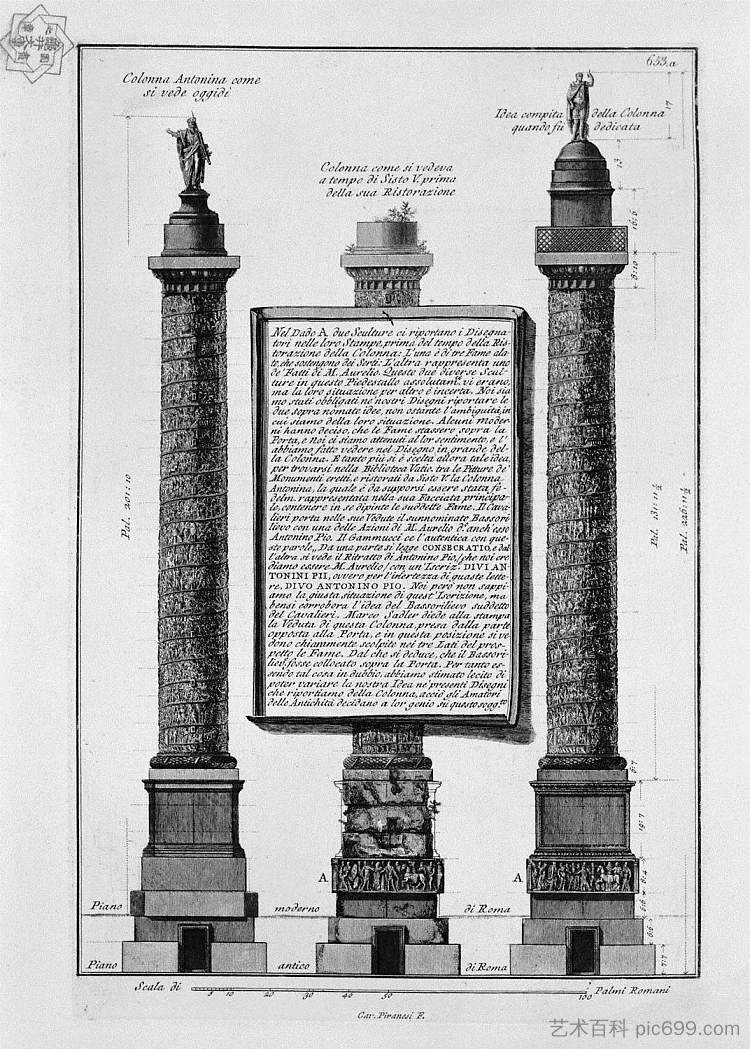 653.a
Colonna Antonina come
si vede oggidi
Colonna come si vedeva
a tempo di Sisto V. prima
della sua Ristorazione
Idea compita della Colonna
quando fù dedicata
Nel Dado A due Sculture ci riportano i Disegna
tori nelle loro Stampe, prima del tempo della Ris-
torazione della Colonna: L'una è di tre Fame ala
te, che sostengono dei Serti: L'altra rappresenta uno
de' Fatti di M. Aurelio. Queste due diverse Scul-
ture in questo Piedestallo assolutam.te vi erano,
ma la loro situazione per altro è incerta. Noi sia
mo stati obbligati ne' nostri Disegni riportare le
due sopra nomate idee, non ostante l'ambiguità, in
cui siamo della loro situazione. Alcuni moder-
ni hanno deciso, che le Fame stassero sopra la
Porta, e Noi ci siamo attenuti al lor sentimento, e l'
abbiamo fatto vedere nel Disegno in grande del-
la Colonna. E tanto più si è scelta allora tale idea,
per trovarsi nella Biblioteca Vatic. tra le Pitture de'
Monumenti eretti, e ristorati da Sisto V. la Colonna
Antonina, la quale è da supporsi essere stata fe-
delm. rappresentata nella sua Facciata principa-
le, contenere in se dipinte le suddette Fame. Il Cava-
lieri porta nelle sue Vedute il sunnominato Bassori-
lievo con una delle Azioni di M. Aurelio d.o anch'esso
Antonino Pio. Il Gammucci ce l'autentica con que-
ste parole„ Da una parte si legge CONSECRATIO, e dal
l'altra si vede il Ritratto di Antonino Pio/che noi cre
diamo essere M. Aurelio/con un'Iscriz. DIVI AN-
TONINI PII, ovvero per l'incertezza di quaste lette-
re, DIVO ANTONINO PIO. Noi però non sappi-
amo la giusta situazione di quest'Iscrizione, ma
bensi corrobora l'idea del Bassorilievo suddetto
del Cavalieri. Marco Sadler diede alla stampa
la Veduta di questa Colonna, presa dalla parte
opposta alla Porta, e in questa posizione si ve-
dono chiammente scolpite nei tre Lati del pros-
petto le Fame. Dal che si deduce, che il Bassori-
lievo fosse collocato sopra la Porta. Per tanto es-
sendo tal cosa in dubbio, abbiamo stimato lecito di
poter variare la nostra Idea ne' presenti Disegni
che riportiamo della Colonna, acciò gli Amatori
delle Antichità decidano a lor genio sù questo sogg.tto
17
13
16:6
8:10
Pal. 201:10
Pal. 131:11½
Pal. 226:11½
6:7
19:7
8:4
6:6
6:6
7:7
A
A
Piano moderno di Roma
Piano antico di Roma
Scala di 5 10 20 30 40 50 100 Palmi Romani
Cav. Piranesi F.
艺术百科 pic699.com